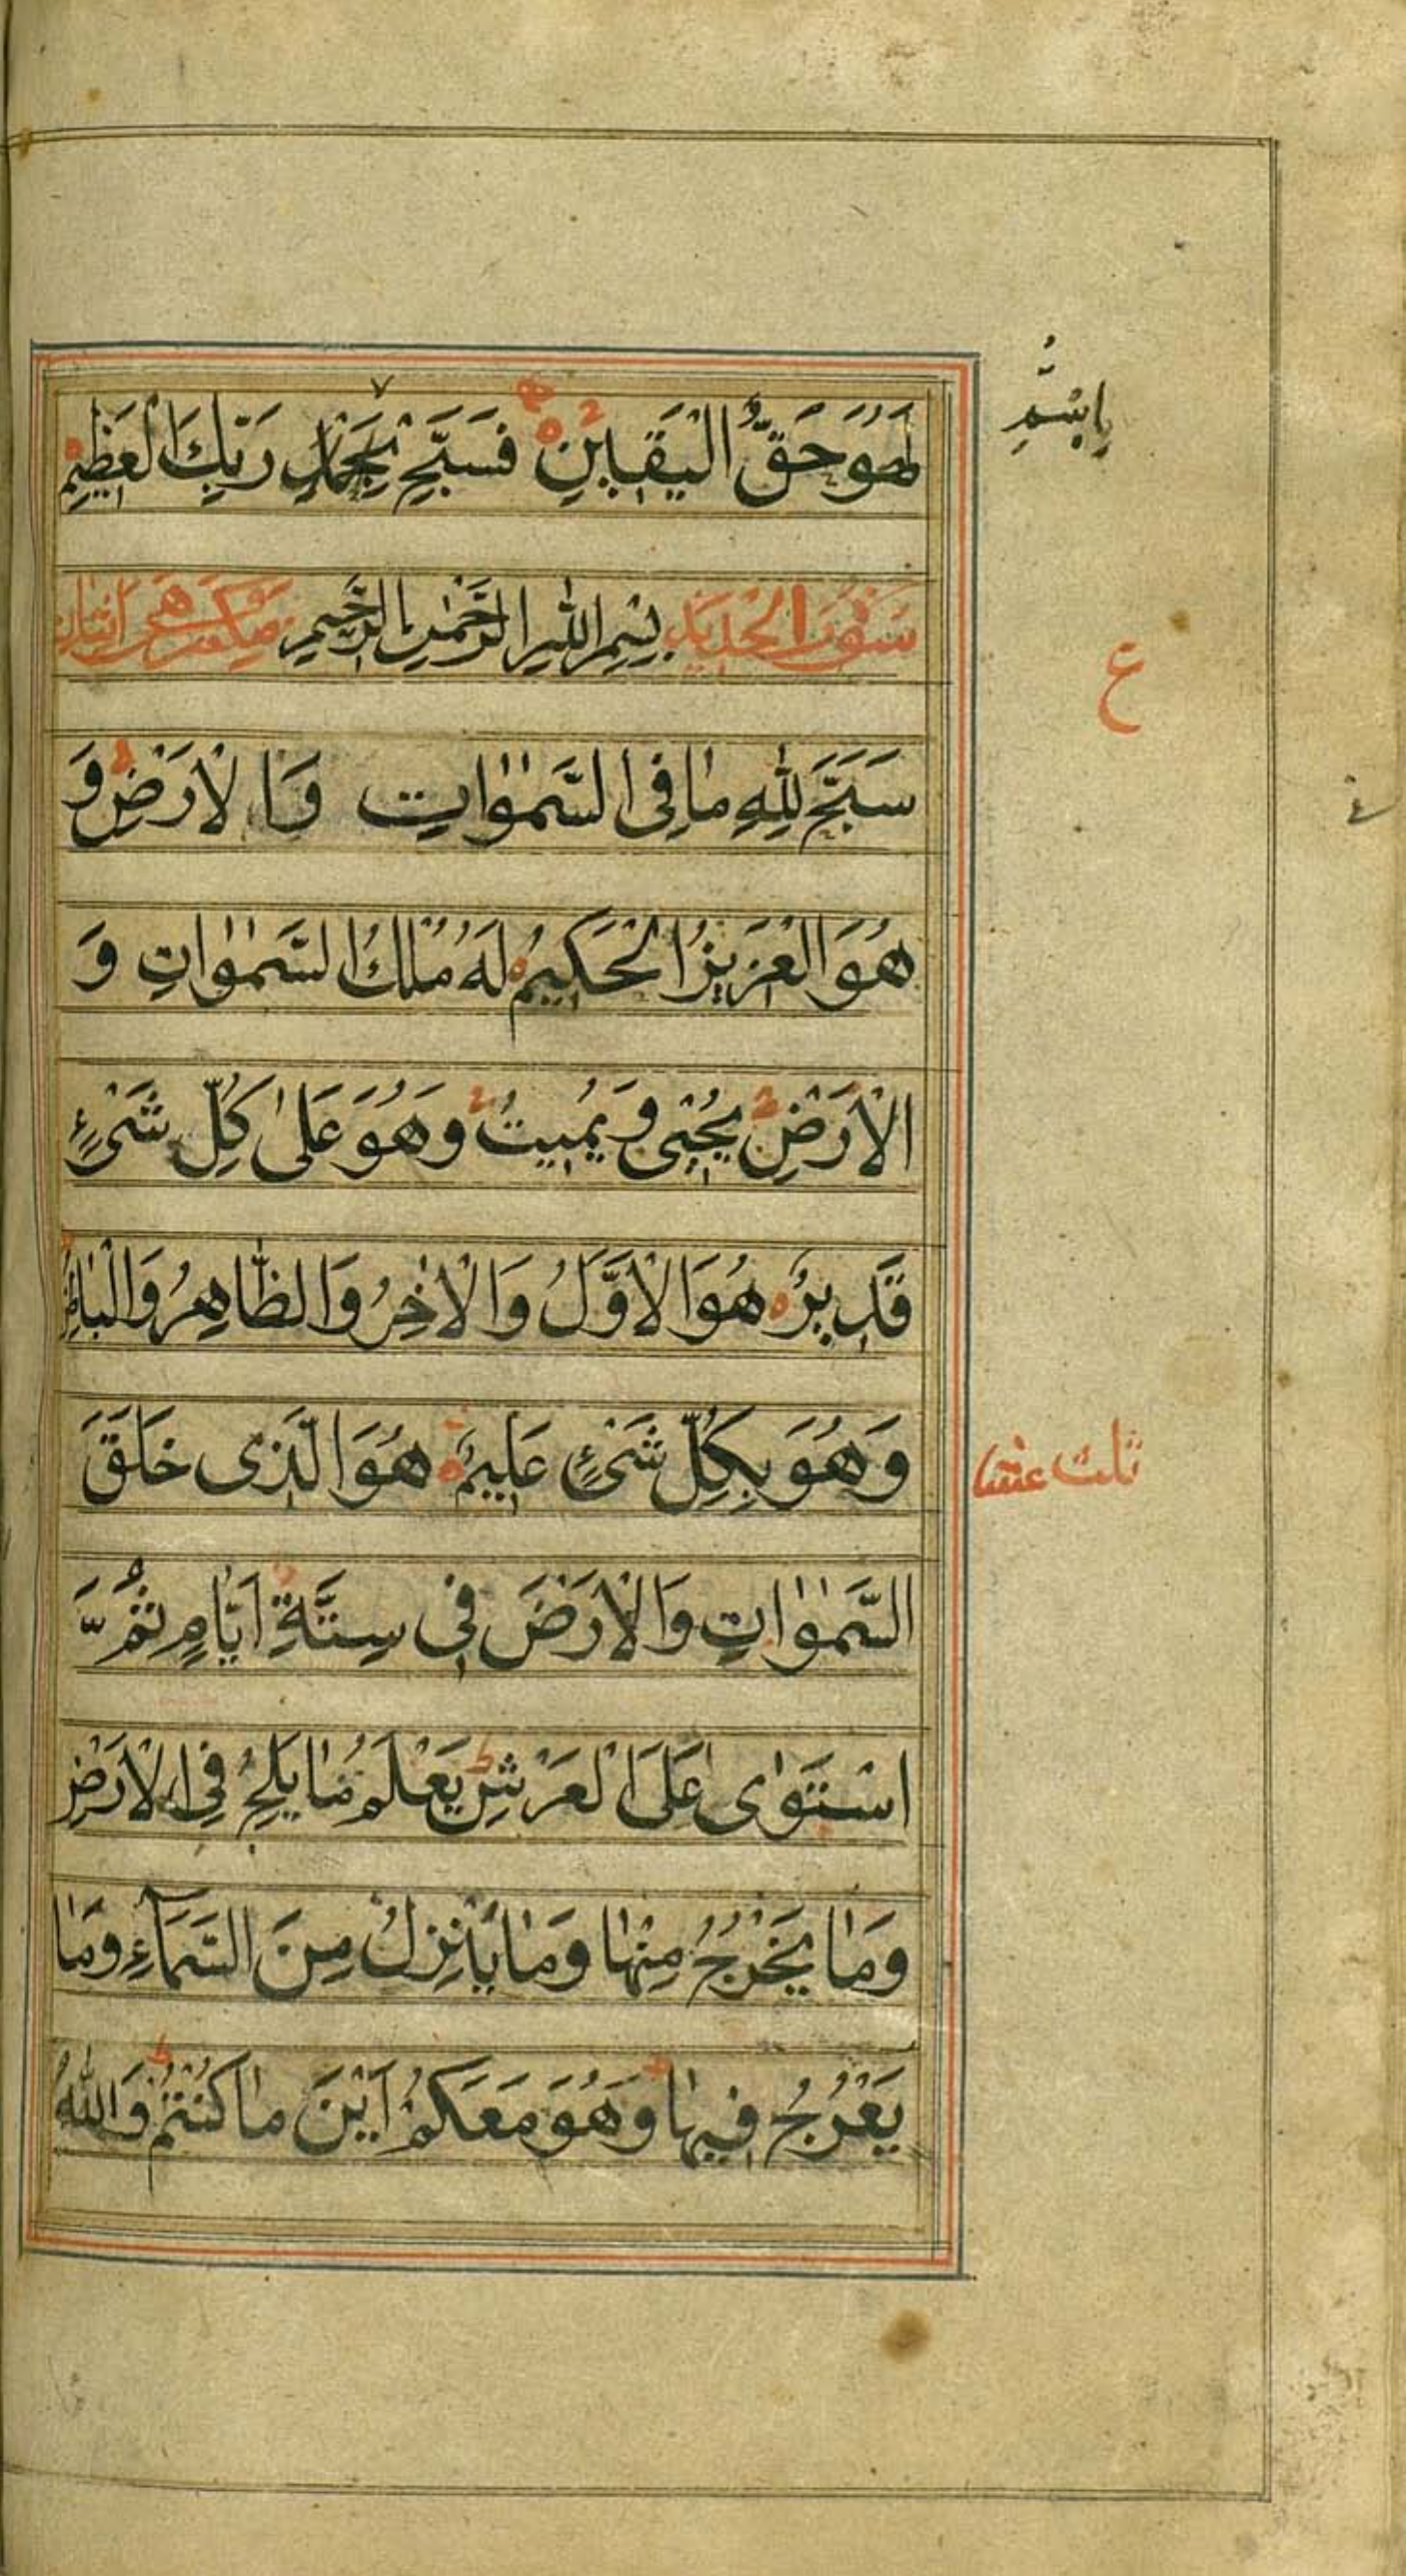 لَهُوَ حَقُّ الْيَقِينِ فَسَبِّحْ بِحَمْدِ رَبِّكَ الْعَظِيمِ
بِاسْمِ
سورة الحديد بِسْمِ اللهِ الرَّحْمٰنِ الرَّحِيمِ
ع
سَبَّحَ لِلّٰهِ مَا فِى السَّمٰوٰاتِ وَالْاَرْضِ وَ
هُوَ الْعَزِيزُ الْحَكِيمُ لَهُ مُلْكُ السَّمٰوٰاتِ وَ
الْاَرْضِ يُحْيِى وَيُمِيتُ وَهُوَ عَلٰى كُلِّ شَىْءٍ
قَدِيرٌ هُوَ الْاَوَّلُ وَالْاٰخِرُ وَالظَّاهِرُ وَالْبَاطِنُ
وَهُوَ بِكُلِّ شَىْءٍ عَلِيمٌ هُوَ الَّذِى خَلَقَ
ثلث
السَّمٰوٰاتِ وَالْاَرْضَ فِى سِتَّةِ اَيَّامٍ ثُمَّ
اسْتَوٰى عَلَى الْعَرْشِ يَعْلَمُ مَا يَلِجُ فِى الْاَرْضِ
وَمَا يَخْرُجُ مِنْهَا وَمَا يَنْزِلُ مِنَ السَّمَاءِ وَمَا
يَعْرُجُ فِيهَا وَهُوَ مَعَكُمْ اَيْنَ مَا كُنْتُمْ وَاللهُ